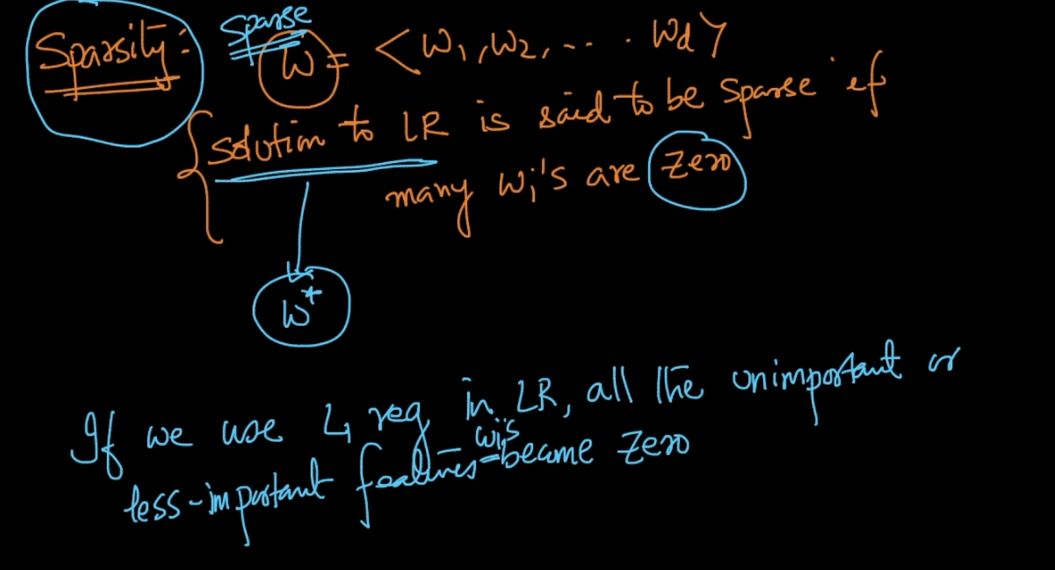 Sparsity: Sparse
W = <W1, W2, ... . Wd>
Solution to LR is said to be Sparse if
many Wi's are Zero
W*
If we use L1 reg in LR, all the unimportant or
less-important features wi's became Zero